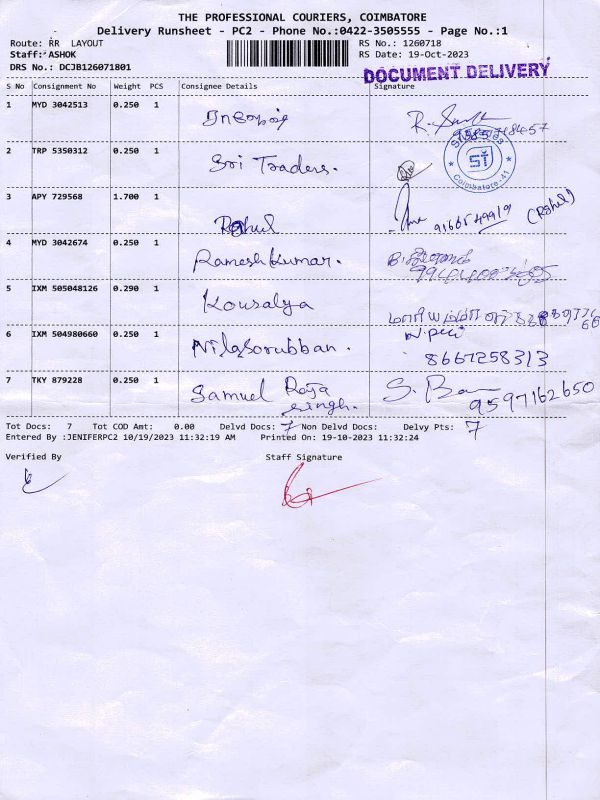 THE PROFESSIONAL COURIERS, COIMBATORE
Delivery Runsheet - PC2 - Phone No.:0422-3505555 - Page No.:1
Route: RR LAYOUT RS No.: 1260718
Staff: ASHOK RS Date: 19-Oct-2023
DRS No.: DCJB126071801
DOCUMENT DELIVERY
S No Consignment No Weight PCS Consignee Details Signature
1 MYD 3042513 0.250 1
2 TRP 5350312 0.250 1 Sri Traders.
ST
Coimbatore-41
3 APY 729568 1.700 1 Rahul 9166549919 (Rahul)
4 MYD 3042674 0.250 1 Ramesh Kumar.
5 IXM 505048126 0.290 1 Kousalya
6 IXM 504980660 0.250 1 Nilasorubban. 8667258313
7 TKY 879228 0.250 1 Samuel Raja singh. 9597162650
Tot Docs: 7 Tot COD Amt: 0.00 Delvd Docs: 7 Non Delvd Docs: Delvy Pts: 7
Entered By :JENIFERPC2 10/19/2023 11:32:19 AM Printed On: 19-10-2023 11:32:24
Verified By Staff Signature